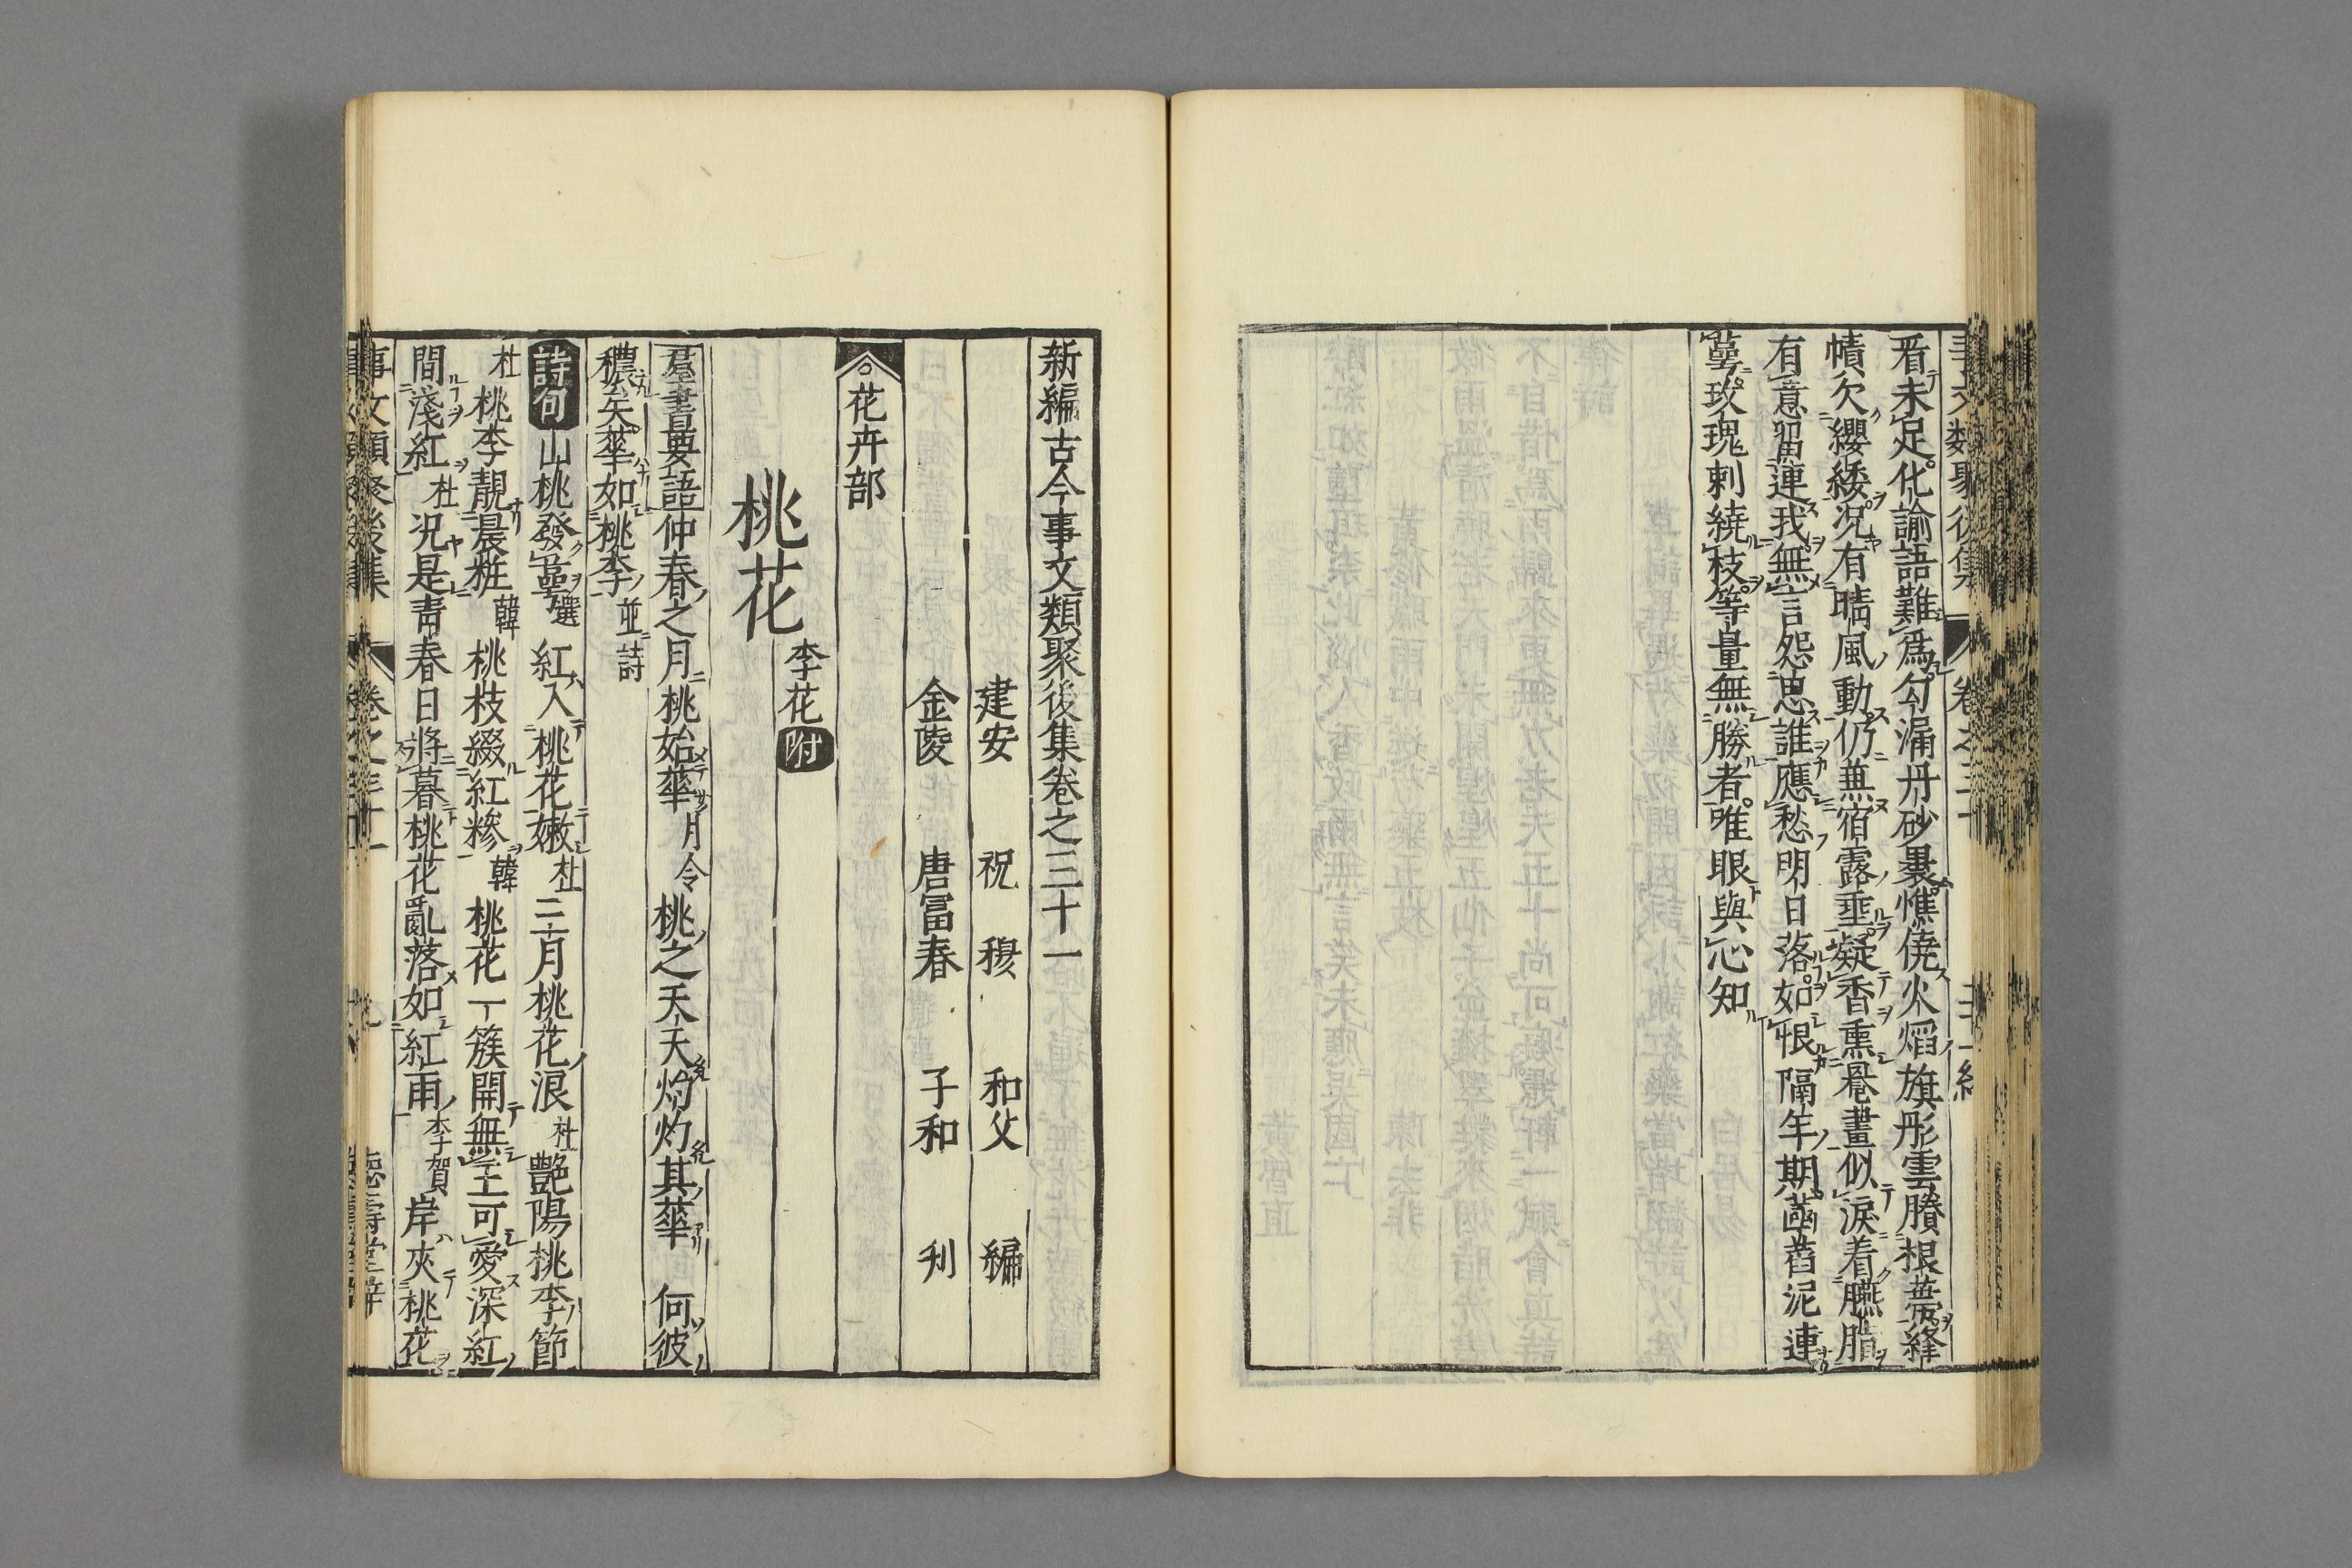 看未足化諭語難爲勾漏丹砂裹憔僥火熖旗彤雲賸根蔕絳
幘欠纓緌況有晴風動仍兼宿露垂疑香熏罨畫似淚着臙脂
有意留連我無言怨思誰應愁明日落如恨隔年期菡萏泥連
萼玫瑰刺繞枝等量無勝者唯眼與心知
新編古今事文類聚後集卷之三十一
建安 祝 穆 和父 編
金陵 唐冨春 子和 刋
花卉部
李花附
桃花
羣書要語仲春之月桃始華月令桃之夭夭灼灼其華 何彼
穠矣華如桃李並詩
詩句山桃發紅萼選 紅入桃花嫩杜三月桃花浪杜艷陽桃李節
杜桃李靚晨粧韓桃枝綴紅糝韓桃花一簇開無主可愛深紅
間淺紅杜況是靑春日將暮桃花亂落如紅雨李賀岸夾桃花
事文類聚後集 卷之三十一